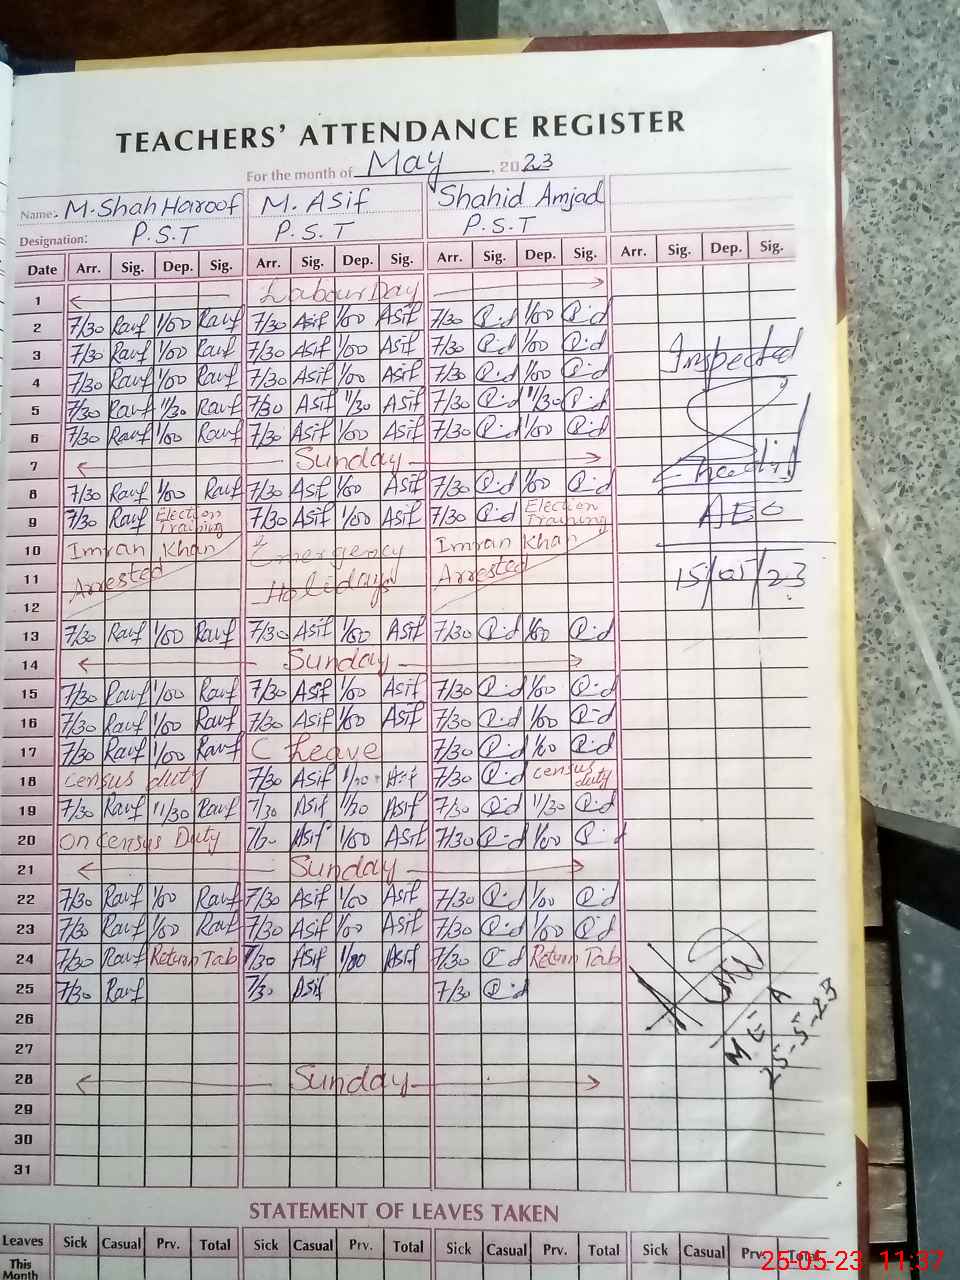 TEACHERS' ATTENDANCE REGISTER
For the month of May, 2023
Name: M. Shah Haroof M. Asif Shahid Amjad
Designation: P.S.T P.S.T P.S.T
Date Arr. Sig. Dep. Sig. Arr. Sig. Dep. Sig. Arr. Sig. Dep. Sig. Arr. Sig. Dep. Sig.
1 Labour Day
2 7/30 Rauf 1/00 Rauf 7/30 Asif 1/00 Asif 7/30 1/00
3 7/30 Rauf 1/00 Rauf 7/30 Asif 1/00 Asif 7/30 1/00 Inspected
4 7/30 Rauf 1/00 Rauf 7/30 Asif 1/00 Asif 7/30 1/00
5 7/30 Rauf 11/30 Rauf 7/30 Asif 11/30 Asif 7/30 11/30
6 7/30 Rauf 1/00 Rauf 7/30 Asif 1/00 Asif 7/30 1/00
7 Sunday
8 7/30 Rauf 1/00 Rauf 7/30 Asif 1/00 Asif 7/30 1/00
9 7/30 Rauf Election Training 7/30 Asif 1/00 Asif 7/30 Election Training AEO
10 Imran Khan Emergency Imran Khan
11 Arrested Holidays Arrested 15/05/23
12
13 7/30 Rauf 1/00 Rauf 7/30 Asif 1/00 Asif 7/30 1/00
14 Sunday
15 7/30 Rauf 1/00 Rauf 7/30 Asif 1/00 Asif 7/30 1/00
16 7/30 Rauf 1/00 Rauf 7/30 Asif 1/00 Asif 7/30 1/00
17 7/30 Rauf 1/00 Rauf C Leave 7/30 1/00
18 Census duty 7/30 Asif Asif 7/30 census duty
19 7/30 Rauf 11/30 Rauf 7/30 Asif 11/30 Asif 7/30 11/30
20 On Census Duty Asif 1/00 Asif 7/30 1/00
21 Sunday
22 7/30 Rauf 1/00 Rauf 7/30 Asif 1/00 Asif 7/30 1/00
23 7/30 Rauf 1/00 Rauf 7/30 Asif 1/00 Asif 7/30 1/00
24 7/30 Rauf Return Tab 7/30 Asif 1/00 Asif 7/30 Return Tab
25 7/30 Rauf 7/30 Asif 7/30
26
27 MEA
28 Sunday 25-5-23
29
30
31
STATEMENT OF LEAVES TAKEN
Leaves Sick Casual Prv. Total Sick Casual Prv. Total Sick Casual Prv. Total Sick Casual Prv. Total
This Month
25-05-23 11:37